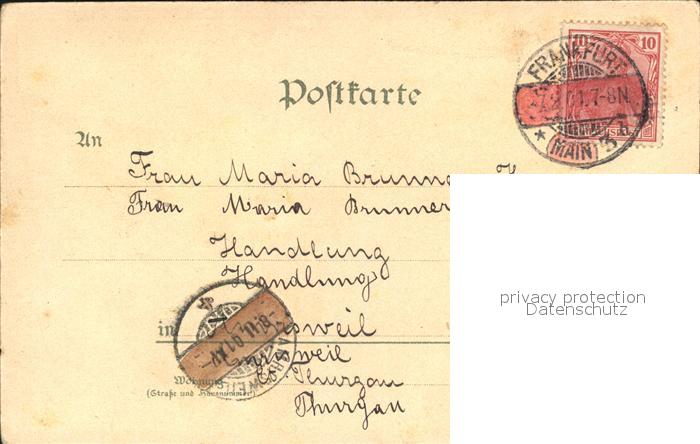 10
FRANKFURT
7-8N.
(MAIN) 3
Postkarte
An
Frau Maria Brunne
Frau Maria Brunner
Handlung
Handlung
privacy protection
Datenschutz
in
weil
weil
Thurgau
Thurgau
Wohnung
(Straße und Hausnummer)